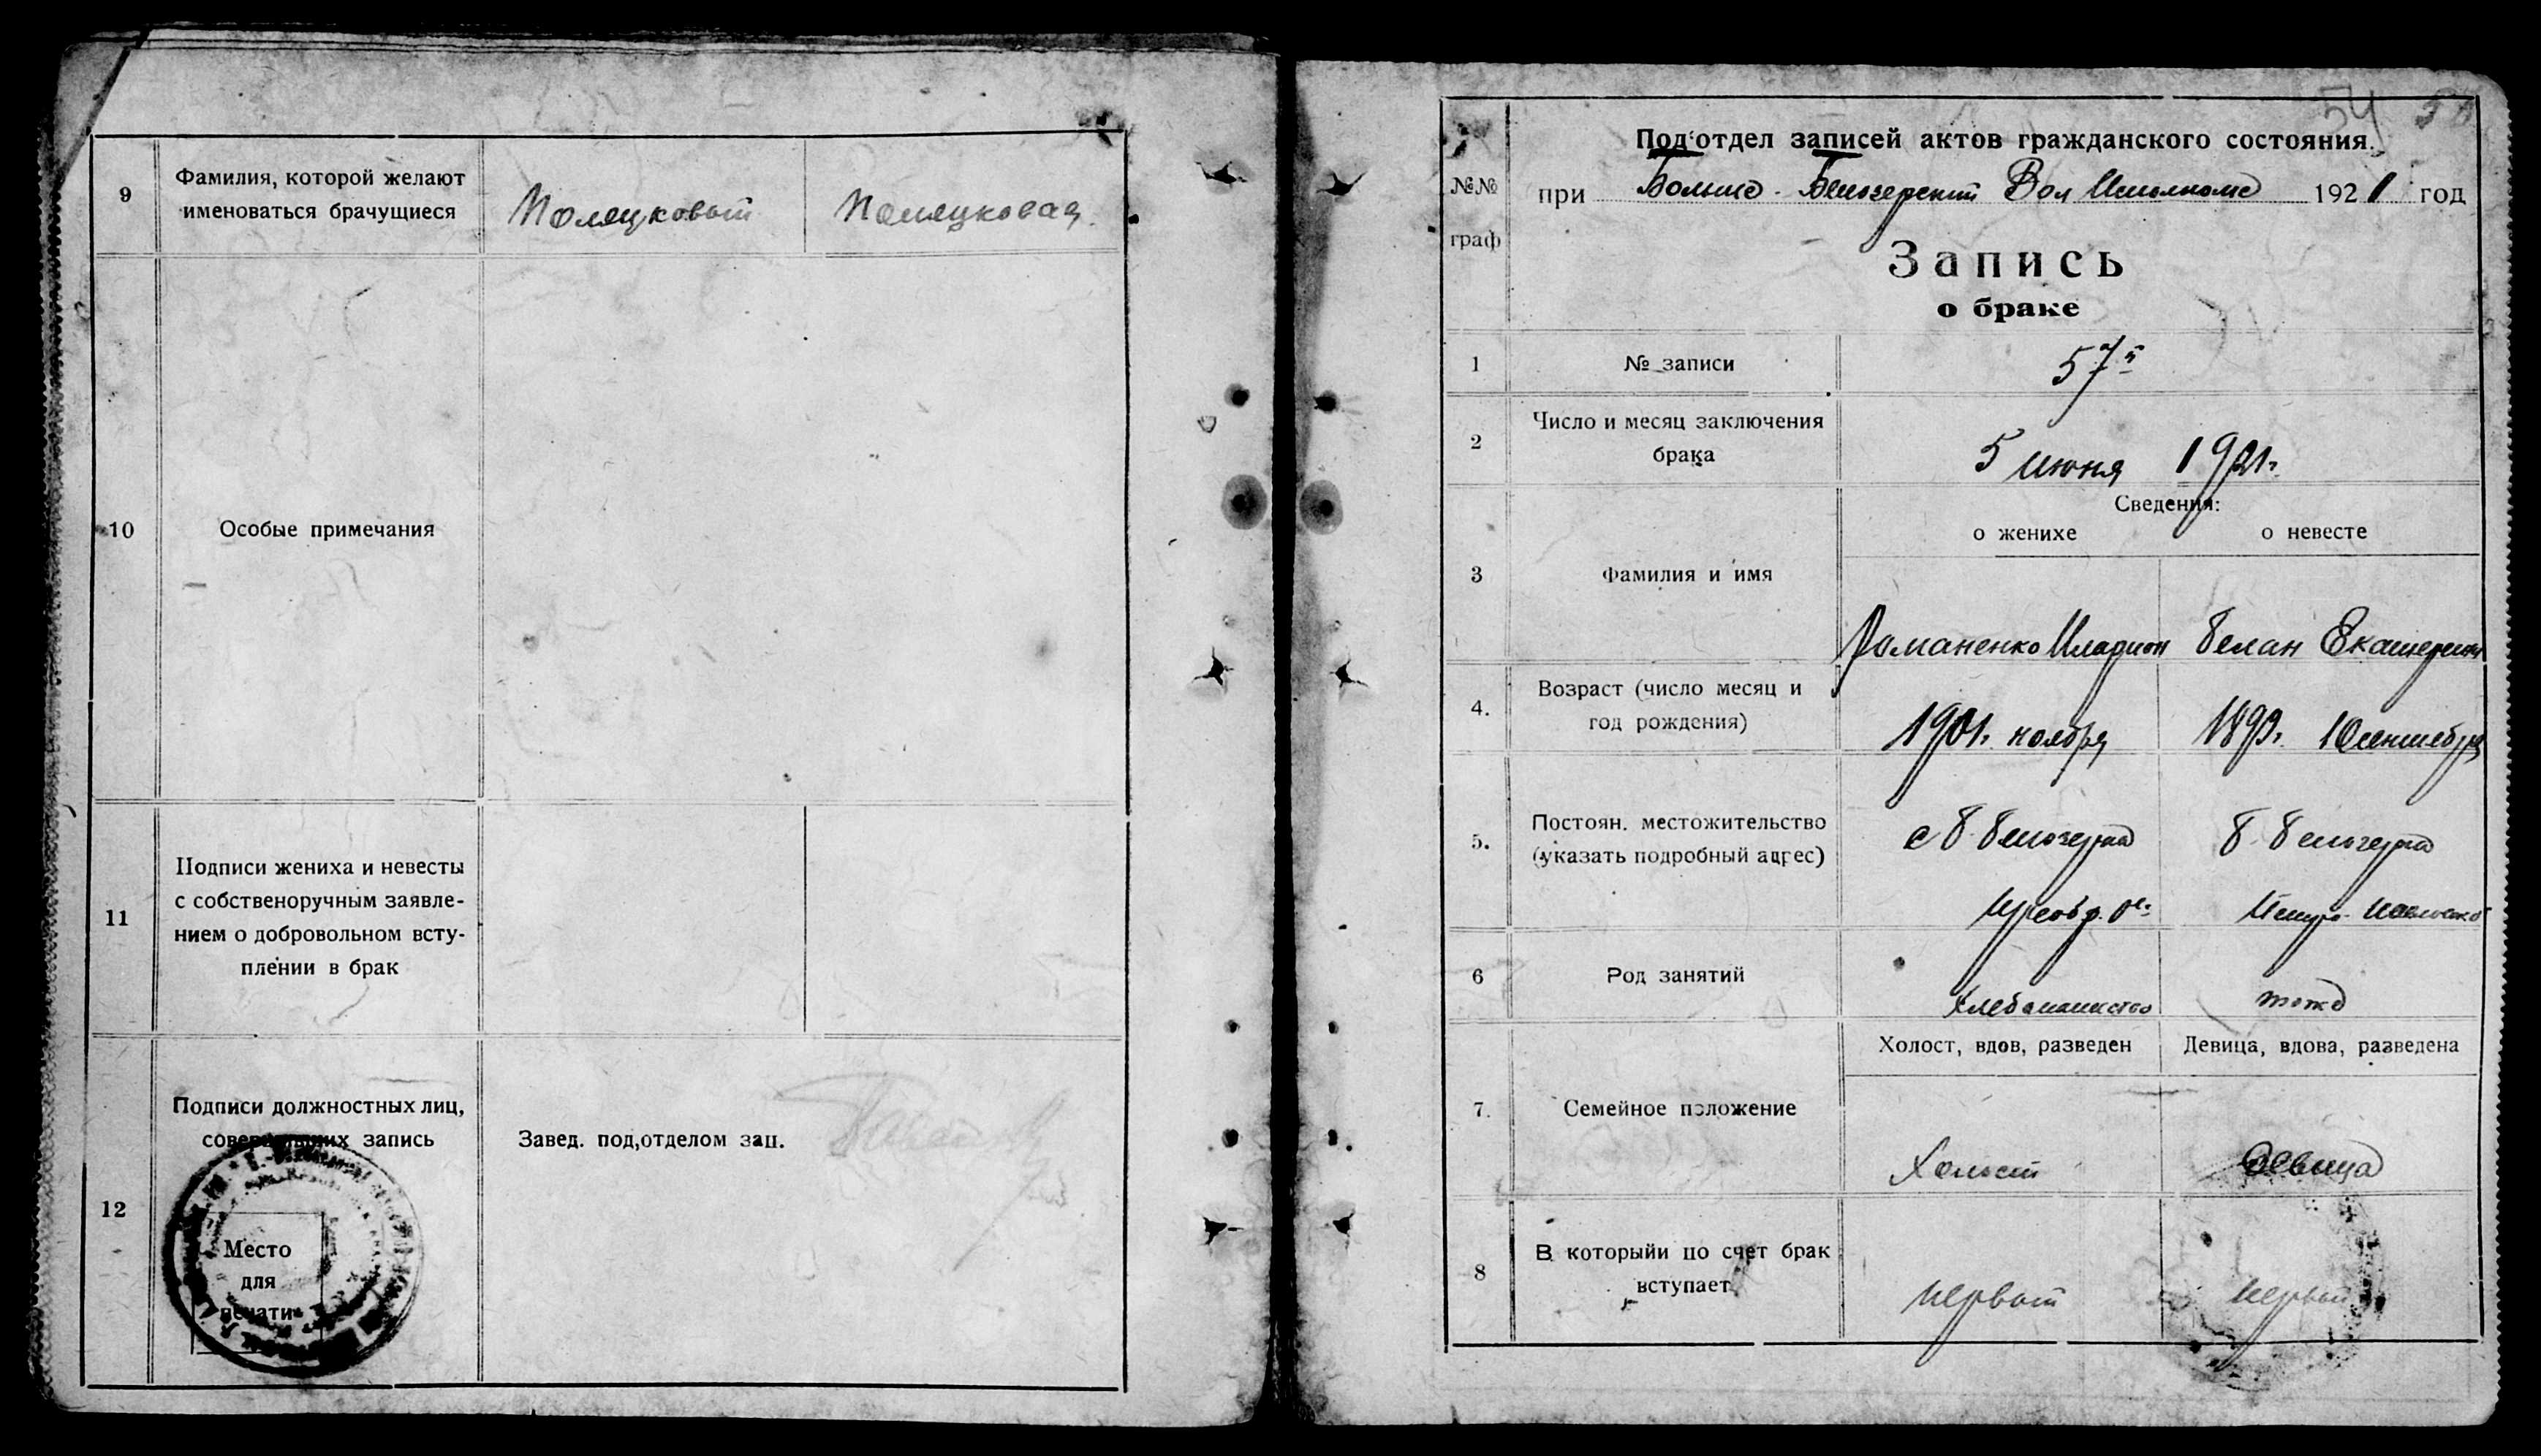 9
Фамилия, которой желают
именоваться брачущиеся
Полецковый
Полецковая.
10
Особые примечания
11
Подписи жениха и невесты
с собственоручным заявле-
нием о добровольном всту-
плении в брак
12
Подписи должностных лиц,
совершивших запись
Завед. под,отделом зап.
Место
для
печати
54
№№
граф
Под'отдел записей актов гражданского состояния.
при Больше-Белозерском Вол Исполкоме 1921 год
Запись
о браке
1
№ записи
57
2
Число и месяц заключения
брака
5 июня 1921г.
Сведения:
о женихе
о невесте
3
Фамилия и имя
Романенко Иларион
Белан Екатерина
4.
Возраст (число месяц и
год рождения)
1901г. ноября
10 сентября
5.
Постоян. местожительство
(указать подробный адрес)
с Б. Белозерка
Б. Белозерка
Петро-Павловско
6
Род занятий
Хлебопашество
тоже
Холост, вдов, разведен
Девица, вдова, разведена
7.
Семейное положение
Холост
Девица
8
В которыйи по счет брак
вступает
первый
первый